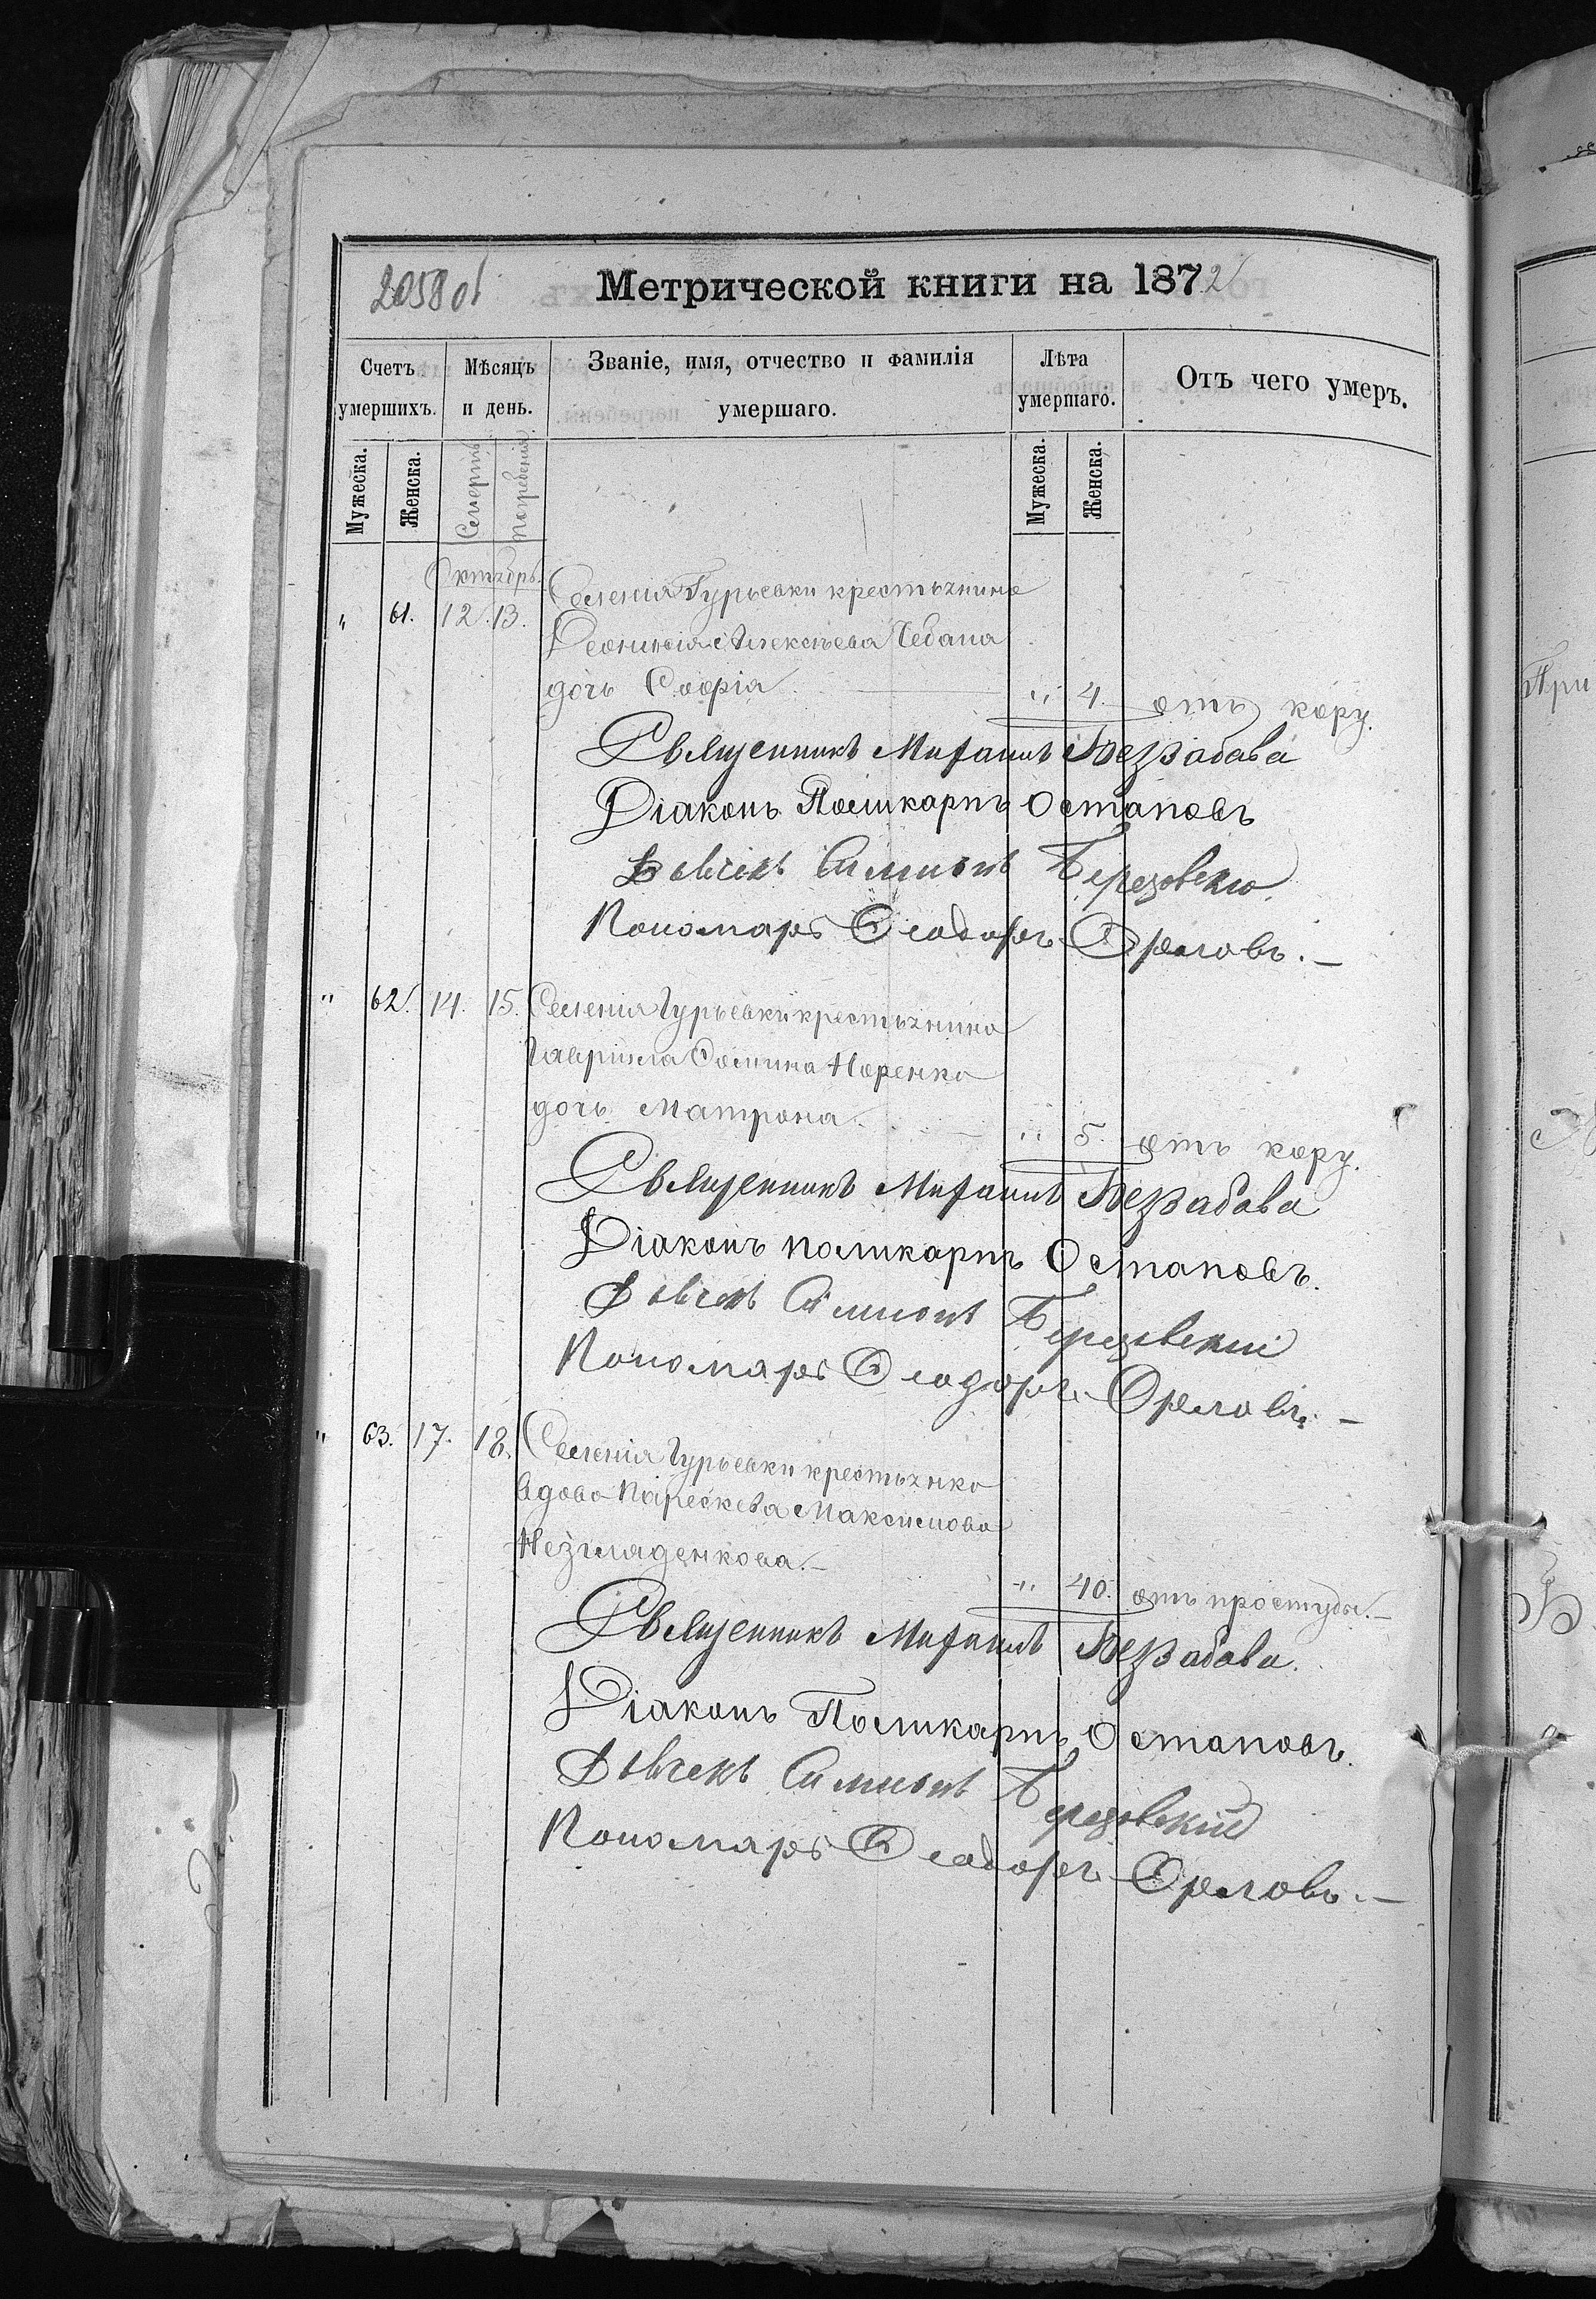 2058 об
Метрической книги на 1872
Счетъ умершихъ.
Мѣсяцъ и день.
Званіе, имя, отчество и фамилія умершаго.
Лѣта умершаго.
Отъ чего умеръ.
Мужеска.
Женска.
Смерти
Погребенія
Мужеска.
Женска.
Октябрь.
" 61. 12. 13. Селенія Гурьевки крестьянина
Деонисія Алексѣева Чебана
дочь Софія " 4. отъ кору.
Священникъ Михаилъ Безабава
Діаконъ Поликарпъ Остаповъ
Дьячекъ Симионъ Березовскій
Пономарь Ѳеодоръ Орловъ. —
" 62. 14. 15. Селенія Гурьевки крестьянина
Гавріила Ѳомина Норенка
дочь Матрона. " 5. отъ кору.
Священникъ Михаилъ Безабава
Діаконъ поликарпъ Остаповъ.
Дьячекъ Симионъ Березовскій
Пономарь Ѳеодоръ Орловъ. —
" 63. 17. 18. Селенія Гурьевки крестьянка
вдова Параскева Максимова
Незгладенкова. — " 40. отъ простуды. —
Священникъ Михаилъ Безабава.
Діаконъ Поликарпъ Остаповъ.
Дьячекъ Симионъ Березовскій
Пономарь Ѳеодоръ Орловъ. —
При